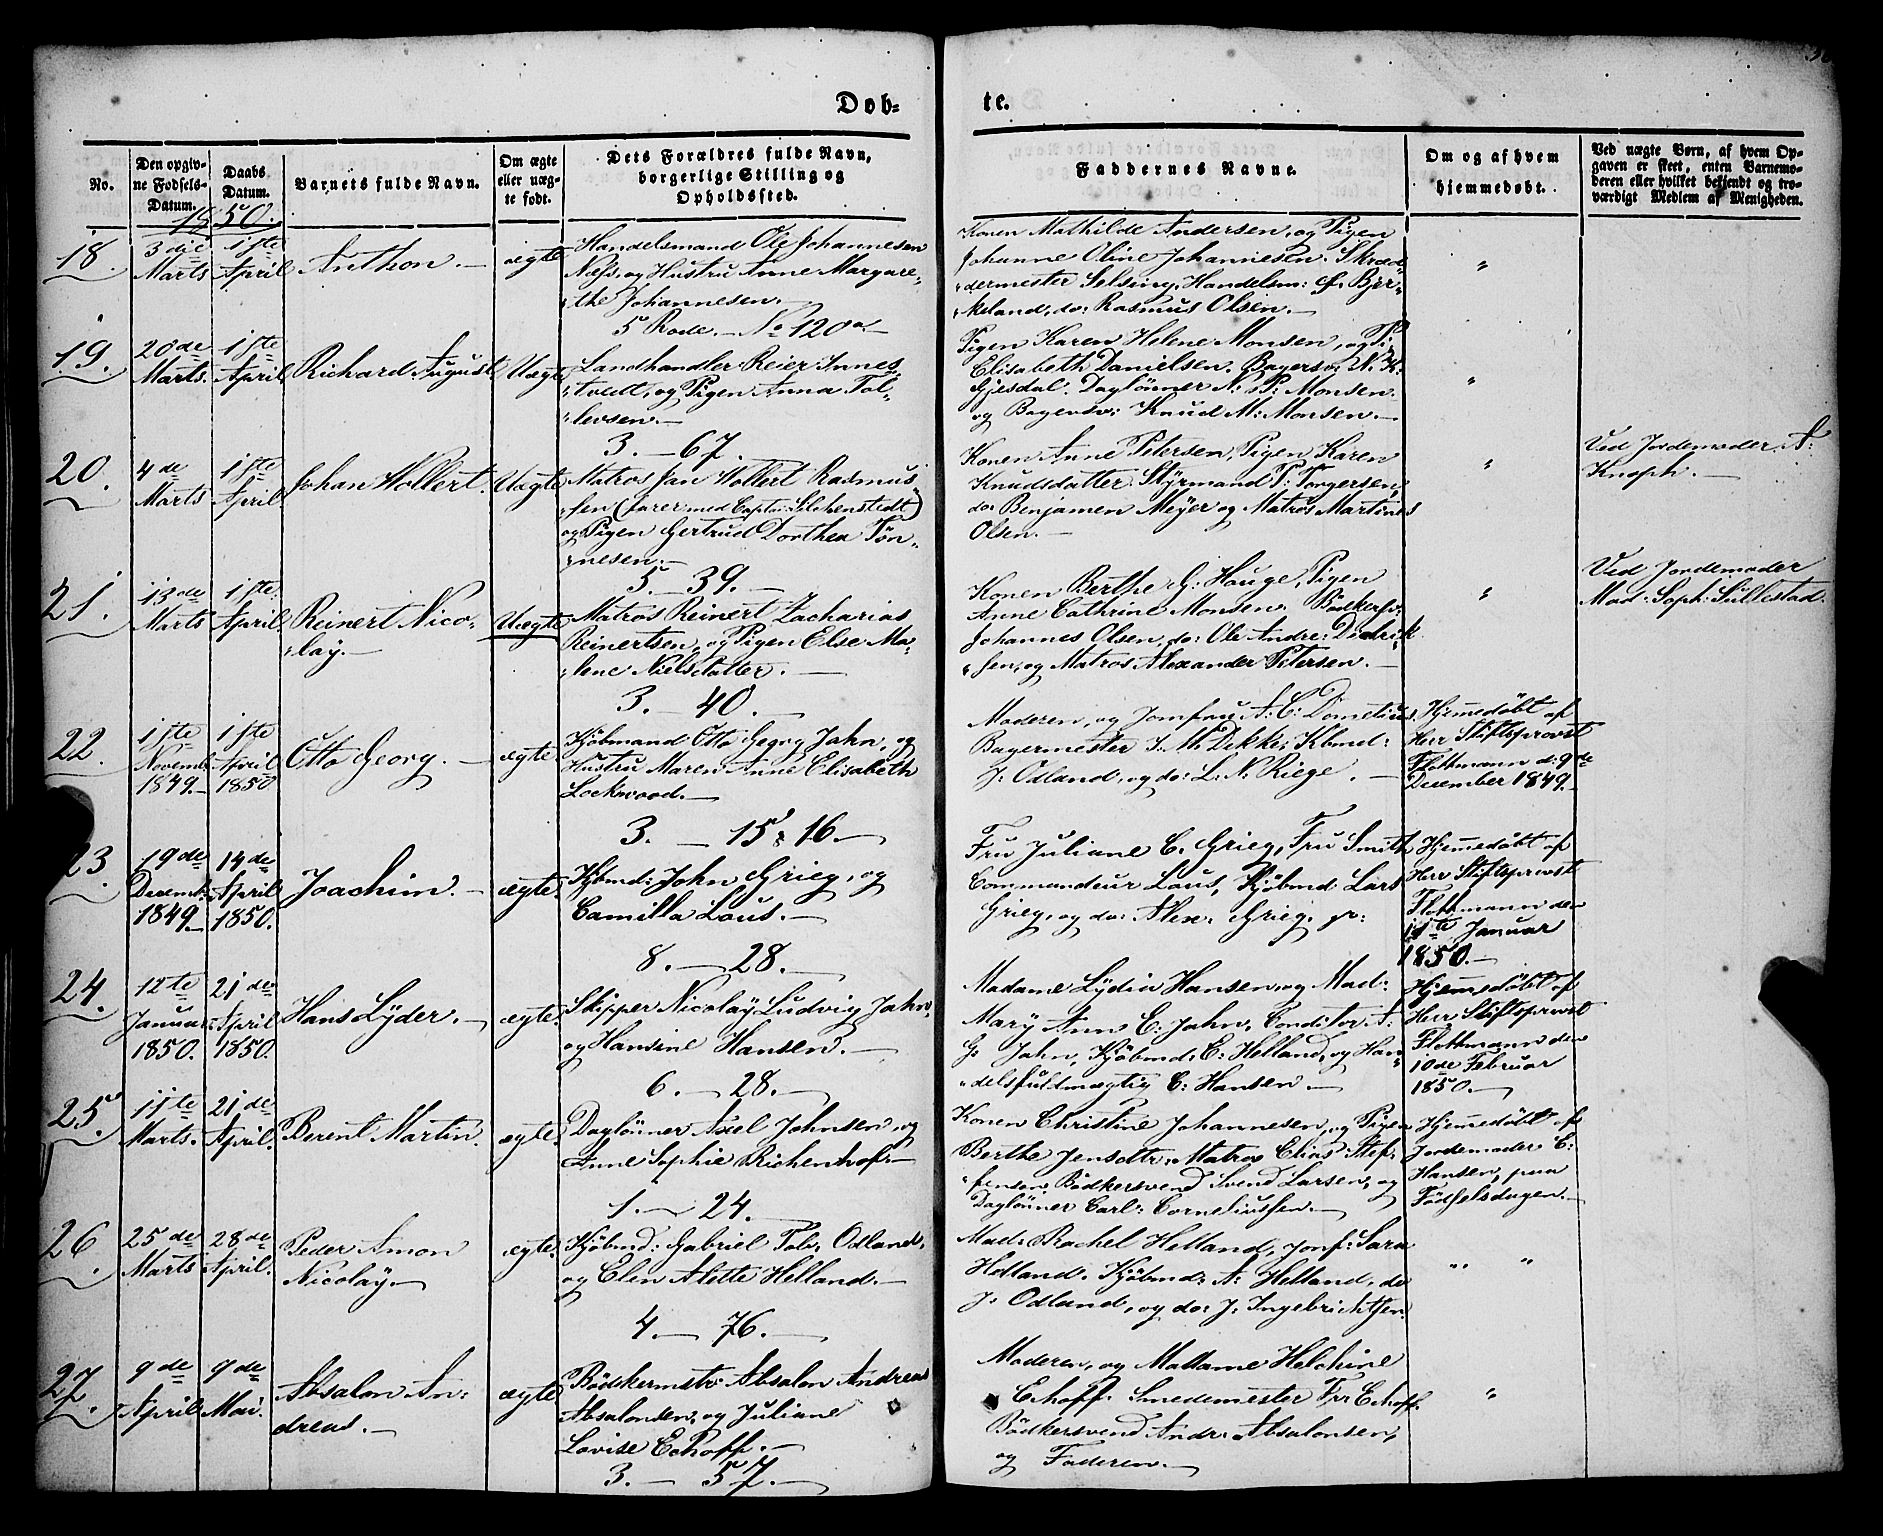 Døb-
te.
No.
Den opgiv-
ne Fødsels-
Datum.
Daabs
Datum.
Barnets fulde Navn.
Om ægte
eller uæg-
te født.
Dets Forældres fulde Navn,
borgerlige Stilling og
Opholdssted.
Faddernes Navne.
Om og af hvem
hjemmedøbt.
Ved uægte Børn, af hvem Op-
gaven er skeet, enten Barnemo-
deren eller hvilket bekjendt og tro-
værdigt Medlem af Menigheden.
1850.
18.
3die
Marts
1ste
April
Anthon.
ægte
Handelsmand Ole Johannesen
Næss, og Hustru Anne Margare-
the Johannesen.
5 Rode. No 120a
Konen Mathilde Andersen, og Pigen
Johanne Oline Johannesen. Skræd-
dermester Selsing, Handelsm: Bjer-
keland, do: Rasmus Olsen.
"
19.
20de
Marts.
1ste
April
Richard August
Uægte
Landhandler Reier Innes-
tvedt, og Pigen Anna Tol-
levsen.
3. 67.
Pigen Karen Helene Monsen, og Pi:
Elisabeth Danielsen. Bagersv: N. K.
Gjesdal. Daglønner N: P: Monsen.
og Bagersv: Knud M: Monsen.
"
20.
4de
Marts
1ste
April
Johan Wollert.
Uægte
Matros Jan Wollert Rasmus-
sen (farer med Captn: Silchenstedt)
og Pigen Gertrud Dorthea Tøn-
nesen.
5. 39.
Konen Anne Petersen, Pigen Karen
Knudsdatter. Styrmand P: Torgersen,
do: Benjamen Meyer og Matros Martines
Olsen.
"
Ved Jordemoder A:
Knoph.
21.
13de
Marts
1ste
April
Reinert Nico-
lay.
Uægte
Matros Reinert Zacharias
Reinertsen, og Pigen Else Ma-
lene Nielsdatter.
3. 40.
Konen Berthe G: Hauge, Pigen
Anne Cathrine Monsen. Bødkersv:
Johannes Olsen, do: Ole Andre: Didrik-
sen, og Matros Alexander Petersen.
"
Ved Jordemoder
Mad: Soph: Sullestad.
22.
1ste
Novemb:
1849.
1ste
April
1850
Otto Georg.
ægte
Kjøbmand Otto Georg Jahn, og
Hustru Maren Anne Elisabeth
Lockwood.
3. 15 & 16
Moderen, og Jomfru A: C: Dornelius,
Bagermester J. M. Dekke, Kbmd:
J. Odland, og do: L. N. Riege.
Hjemmedøbt af
Herr Stiftsprovst
Flottmann d: 9de
December 1849.
23.
19de
Decemb:
1849.
14de
April
1850.
Joachim.
ægte
Kjøbmd: John Grieg, og
Camilla Laus.
8. 28.
Fru Juliane C. Grieg, Fru Smith
Commandeur Laus, Kjøbmd: Lars
Grieg, og do: Alex: Grieg. jr:
Hjemmedøbt af
Herr Stiftsprovst
Flottmann den
11te Januar
1850.
24.
12te
Januar
1850.
21de
April
1850.
Hans Lyder.
ægte
Skipper Nicolay Ludvig Jahn,
og Hansine Hansen.
6. 28.
Madame Lydia Hansen, og Mad:
Mary Ann E: Jahn, Conditor A:
G: Jahn, Kjøbmd: C: Helland, og Han-
delsfuldmægtig C: Hansen.
Hjemmedøbt af
Herr Stiftsprovst
Flottmann den
10de Februar
1850.
25.
11te
Marts.
21de
April.
Berent Martin.
ægte
Daglønner Axel Johnsen, og
Anne Sophie Richenhof.
1. 24.
Konen Christine Johannesen, og Pigen
Berthe Jensdtr: Matros Elias Stef-
fensen, Bødkersvend Svend Larsen, og
Daglønner Carl: Corneliussen.
Hjemmedøbt af
Jordemoder C:
Hansen, paa
Fødselsdagen.
26.
25de
Marts
28de
April.
Peder Amon
Nicolay.
ægte
Kjøbmd: Gabriel Tob: Odland,
og Elen Alette Helland.
4. 76.
Mad: Rachel Helland, Jomf: Sara
Helland. Kjøbmd: A: Helland, do
J: Odland, og do: J: Ingebrichtsen
" "
27.
9de
April
9de
Mai.
Absalon An-
dreas.
ægte
Bødkermstr: Absalon Andreas
Absalonsen, og Juliane
Lovise Echoff.
3. 57.
Moderen, og Madame Helchine
Echoff. Smedemester Fr: Echoff.
Bødkersvend Andr: Absalonsen,
og Faderen.
"